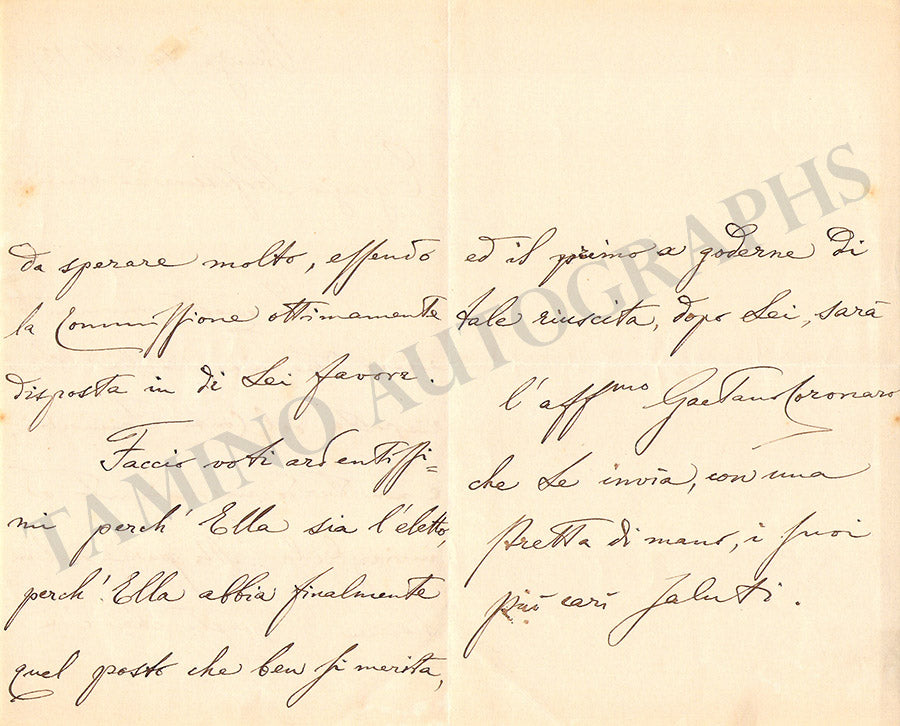 da sperare molto, essendo
la Commissione ottimamente
disposta in di Lei favore.
Faccio voti ardentissi=
mi perch' Ella sia l'eletto,
perch' Ella abbia finalmente
quel posto che ben si merita,
ed il primo a goderne di
tale riuscita, dopo Lei, sarà
l'aff.mo Gaetano Coronaro
che Le invia, con una
stretta di mano, i suoi
più cari saluti.
TAMINO AUTOGRAPHS